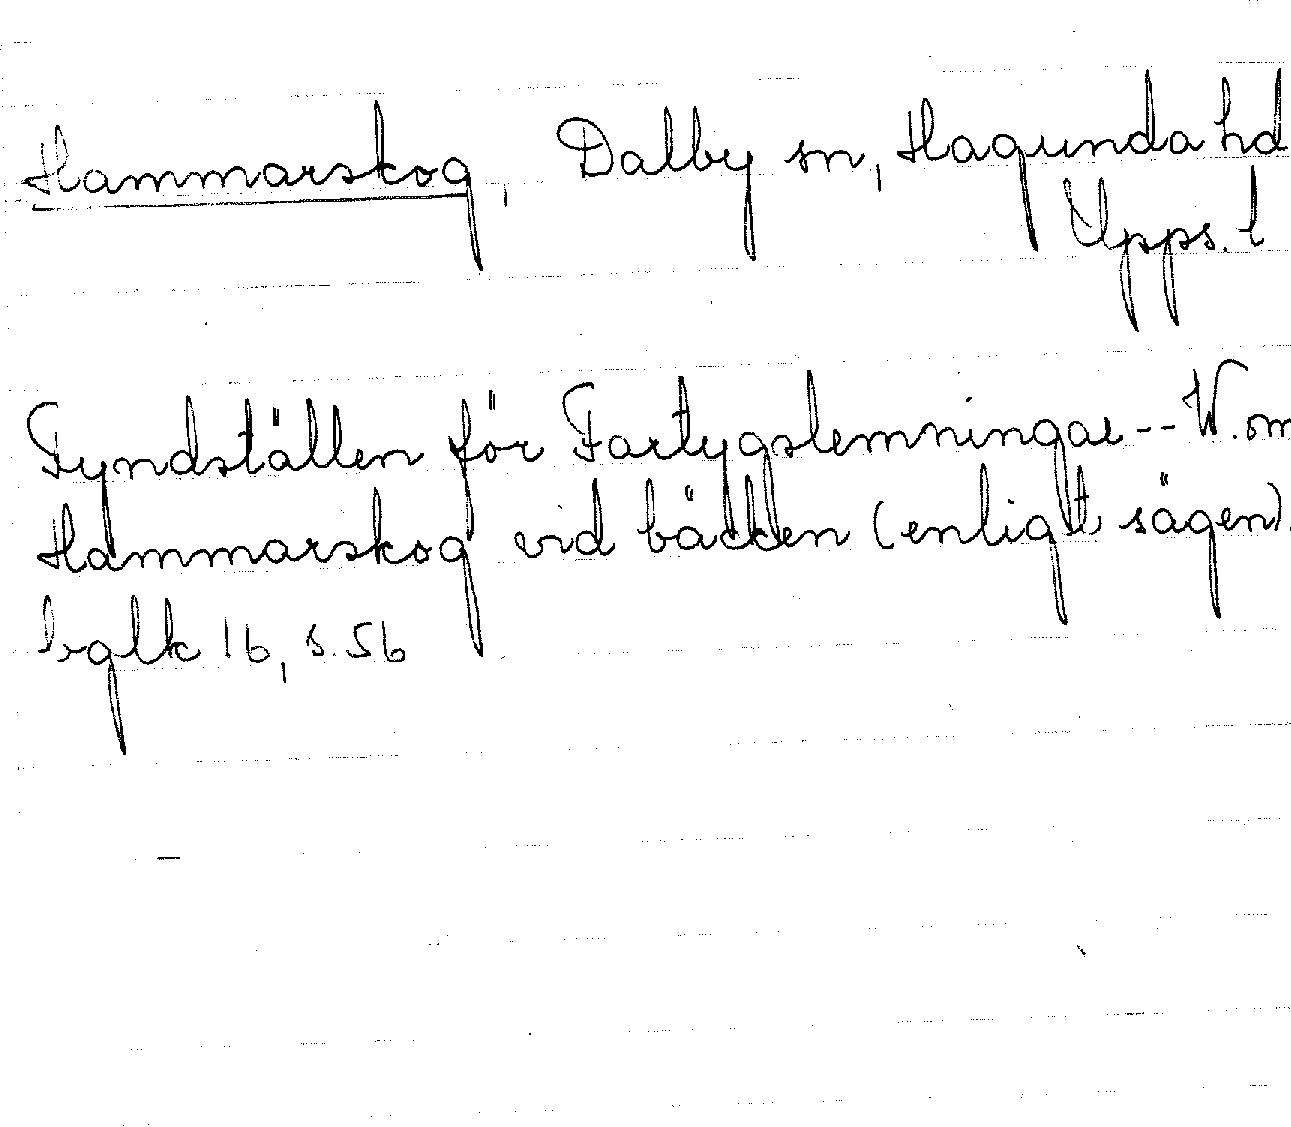 Hammarskog, Dalby sn, Hagunda hd
Upps. l
Fyndställen för Fartygslemningar -- W. om
Hammarskog vid bäcken (enligt sägen).
bglk 16, s. 56